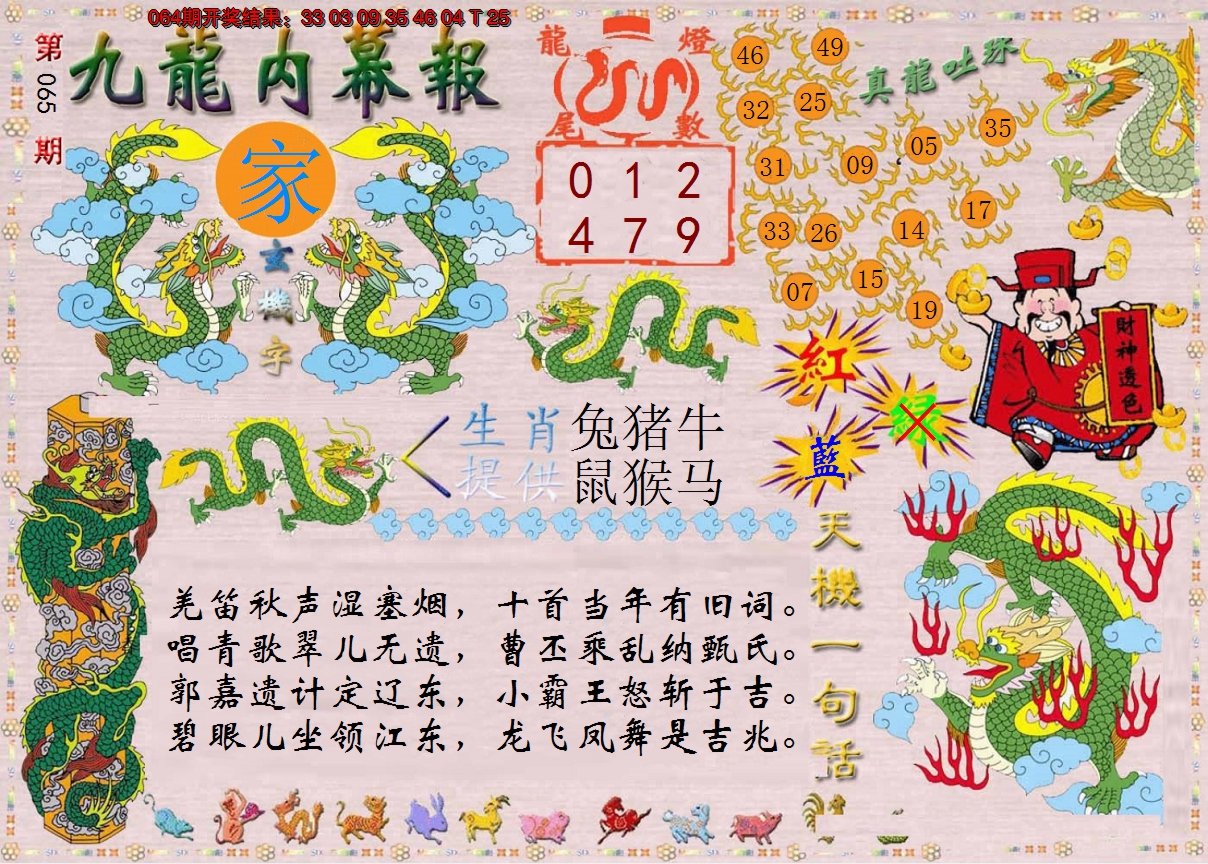 064期开奖结果：33 03 09 35 46 04 T 25
第065期
九龍内幕報
家
玄機字
龍燈尾數
0 1 2
4 7 9
真龍吐珠
46 49
32 25
31 09 05 35
33 26 14 17
07 15 19
紅
绿
藍
財神透色
生肖提供
兔猪牛
鼠猴马
天機一句話
羌笛秋声湿塞烟，十首当年有旧词。
唱青歌翠儿无遗，曹丕乘乱纳甄氏。
郭嘉遗计定辽东，小霸王怒斩于吉。
碧眼儿坐领江东，龙飞凤舞是吉兆。